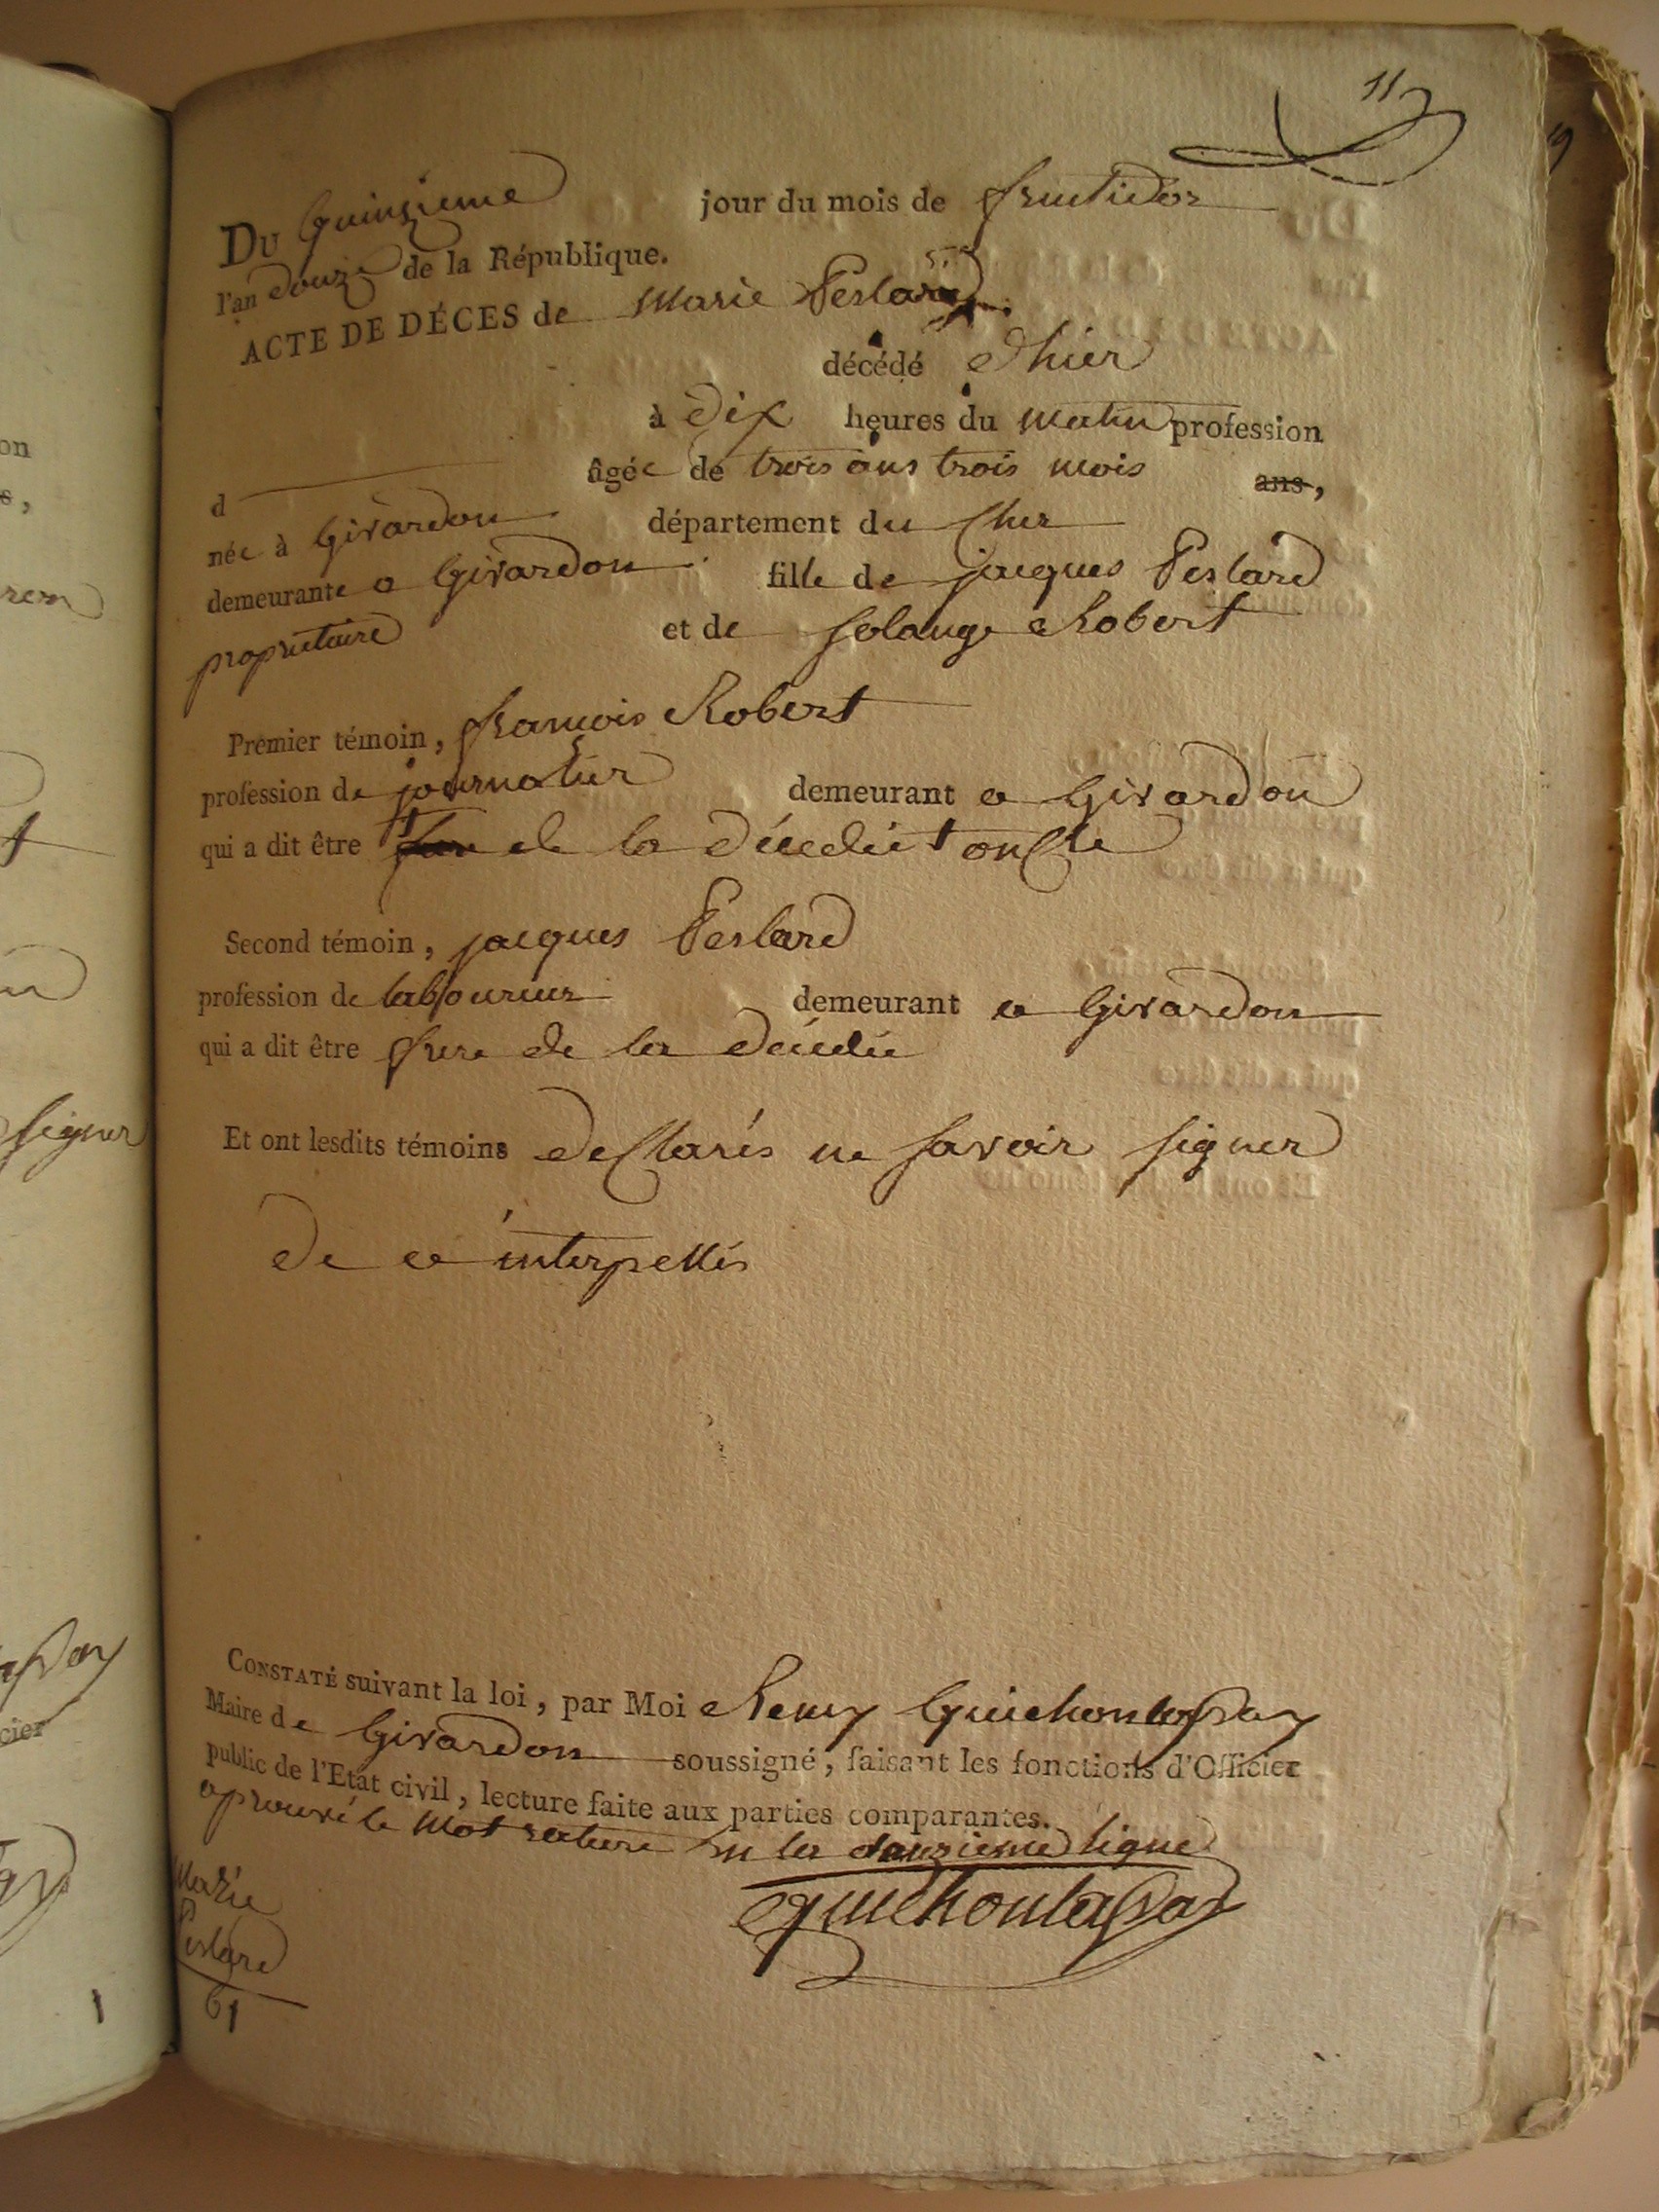 117
Du quinzieme jour du mois de fructidor
l'an douze de la République.
ACTE DE DÉCES de Marie Peslard
décédé dhier
à dix heures du matin profession
d âgée de trois ans trois mois ans,
née à Givardon département du Cher
demeurante a Givardon fille de jacques Peslard
proprietaire et de solange Robert
Premier témoin, francois Robert
profession de journalier demeurant a Givardon
qui a dit être de la décédée + oncle
Second témoin, jacques Peslard
profession de laboureur demeurant a Givardon
qui a dit être frere de la décédée
Et ont lesdits témoins declarés ne savoir signer
de ce interpellés
CONSTATÉ suivant la loi, par Moi Remy Guichontassay
Maire de Givardon soussigné, faisant les fonctions d'Officier
public de l'Etat civil, lecture faite aux parties comparantes.
aprouvé le mot rature sur la douzieme ligne
Marie
Peslard
61
signer
cier